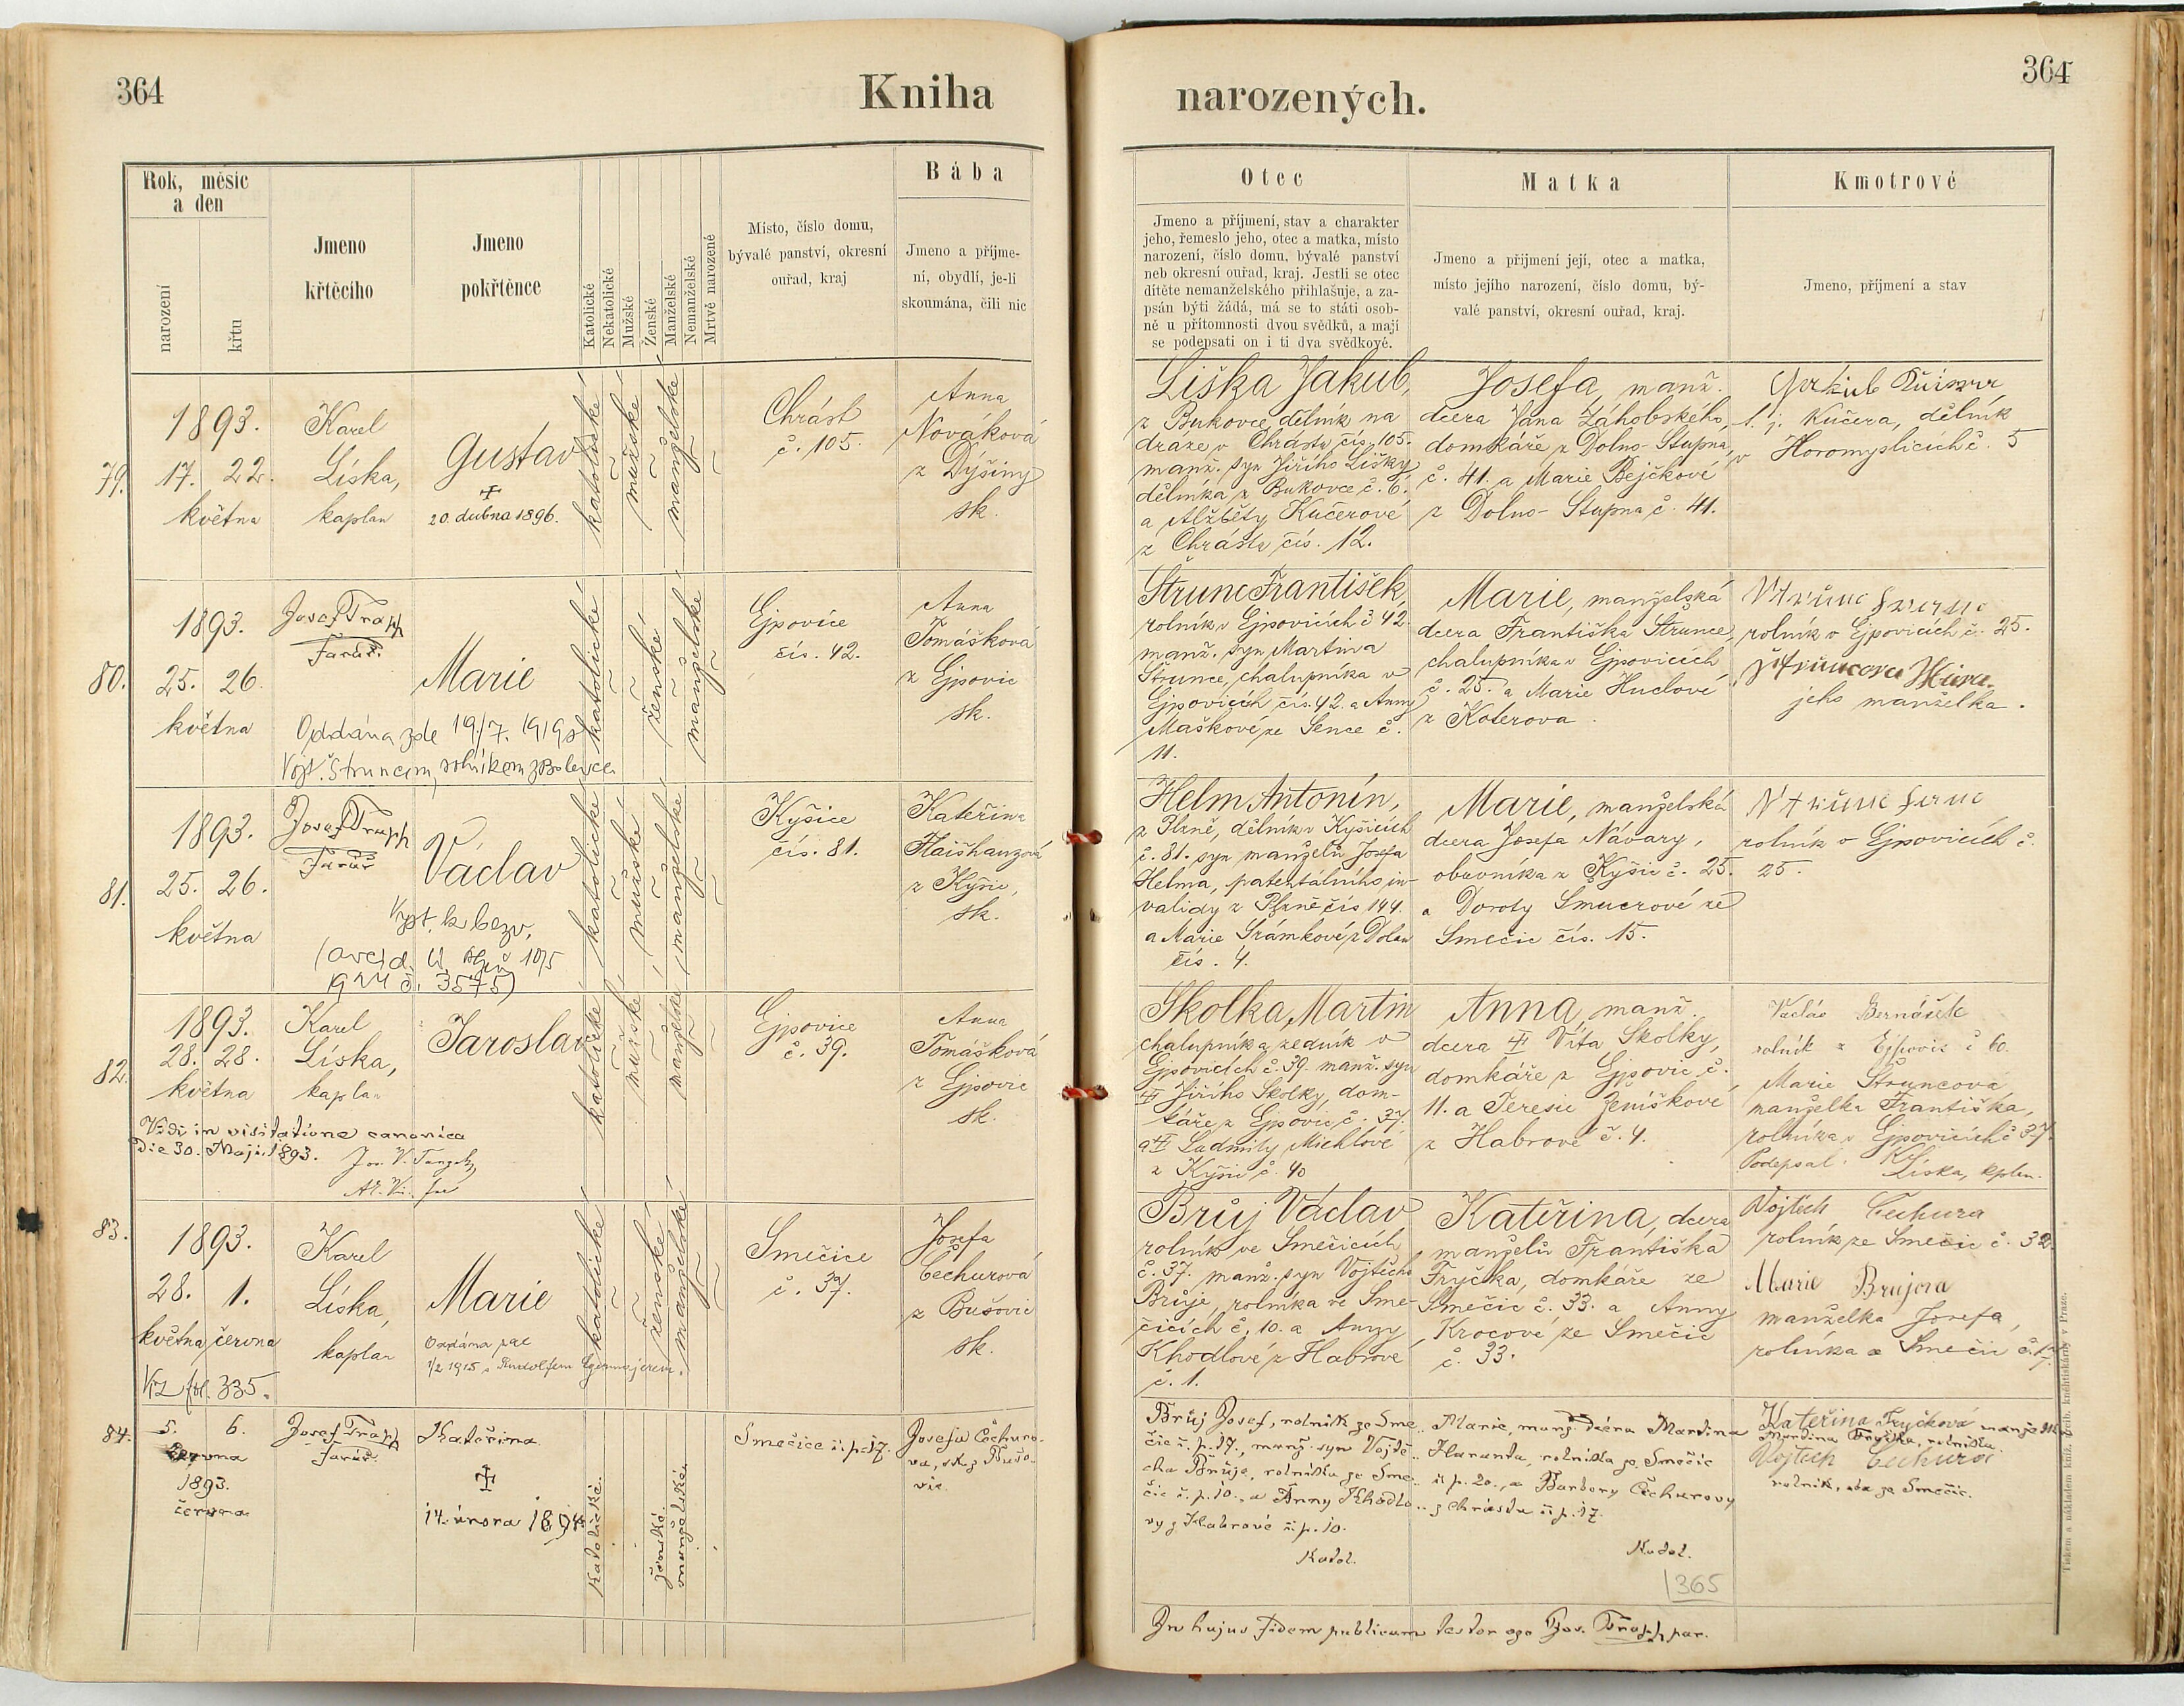 364
Kniha
narozených.
364
Rok, měsíc
a den
narození
křtu
Jmeno
křtěcího
Jmeno
pokřtěnce
Katolické
Nekatolické
Mužské
Ženské
Manželské
Nemanželské
Mrtvě narozené
Místo, číslo domu,
bývalé panství, okresní
ouřad, kraj
Bába
Jmeno a příjme-
ní, obydlí, je-li
skoumána, čili nic
Otec
Jmeno a příjmení, stav a charakter
jeho, řemeslo jeho, otec a matka, místo
narození, číslo domu, bývalé panství
neb okresní ouřad, kraj. Jestli se otec
dítěte nemanželského přihlašuje, a za-
psán býti žádá, má se to státi osob-
ně u přítomnosti dvou svědků, a mají
se podepsati on i ti dva svědkové.
Matka
Jmeno a přijmení její, otec a matka,
místo jejího narození, číslo domu, bý-
valé panství, okresní ouřad, kraj.
Kmotrové
Jmeno, příjmení a stav
79.
1893.
17. 22.
května
Karel
Líska,
kaplan
Gustav
20. dubna 1896.
katolické
mužské
manželské
Chrást
č. 105.
Anna
Nováková
z Dýšiny
sk.
Liška Jakub,
z Bukovce, dělník na
dráze v Chrástu čís. 105.
manž. syn Jiřího Lišky
dělníka z Bukovce č. 6.
a Alžběty Kučerové
z Chrásta čís. 12.
Josefa, manž.
dcera Jana Záhobského,
domkáře z Dolno-Stupna,
č. 41. a Marie Bejčkové
z Dolno-Stupna č. 41.
t. j. Kučera, dělník
v Horomyslicích č. 5
80.
1893.
25. 26.
května
Josef Trapp
farář.
Marie
Oddána zde 19./7. 1919 s
Vojt. Štruncem, rolníkem z Bolevce
katolické
ženské
manželské
Ejpovice
čís. 42.
Anna
Tomášková
z Ejpovic
sk.
Štrunc František,
rolník v Ejpovicích č 42.
manž. syn Martina
Štrunce, chalupníka v
Ejpovicích čís. 42. a Anny
Maškové ze Sence č.
11.
Marie, manželská
dcera Františka Štrunce,
chalupníka v Ejpovicích
č. 25. a Marie Huclové
z Koterova.
rolník v Ejpovicích č. 25.
jeho manželka.
81.
1893.
25. 26.
května
Josef Trapp
farář
Václav
Vyst. k bezv.
1924 č. 3575)
katolické
mužské
manželské
Kyšice
čís. 81.
Kateřina
Haishanzová
z Kyšic,
sk.
Helm Antonín,
z Plzně, dělník v Kyšicích
č. 81. syn manželů Josefa
Helma, patentálního in-
validy z Plzně čís 144.
a Marie Šrámkové z Dolan
čís. 4.
Marie, manželská
dcera Josefa Návary,
obuvníka z Kyšic č. 25.
a Doroty Šmucrové ze
Smečic čís. 15.
rolník v Ejpovicích č.
25.
82.
1893.
28. 28.
května
Karel
Líska,
kaplan
Jaroslav
katolické
mužské
manželské
Ejpovice
č. 39.
Anna
Tomášková
z Ejpovic
sk.
Vidi in visitatione canonica
Die 30. Maji 1893.
Školka, Martin
chalupník a zedník v
Ejpovicích č. 39. manž. syn
Jiřího Školky, dom-
káře z Ejpovic č. 37.
a Ludmily Michlové
z Kyšic č. 40
Anna, manž.
dcera Víta Školky,
domkáře z Ejpovic č.
11. a Terezie Ženíškové
z Habrové č. 4.
Václav Bernášek
rolník z Ejpovic č 60.
Marie Štruncova
manželka Františka,
rolníka v Ejpovicích č 37.
Podepsal K Líska, kplan.
83.
1893.
28. 1.
května června
Viz fol. 335.
Karel
Líska,
kaplan
Marie
Oddána zde
1/2 1915 s Rudolfem
katolické
ženské
manželské
Smečice
č. 37.
Josefa
Čechurová
z Bušovic
sk.
Brůj Václav
rolník ve Smečicích
č. 37. manž. syn Vojtěcha
Brůje, rolníka ve Sme-
čicích č. 10. a Anny
Khodlové z Habrové
č. 1.
Kateřina, dcera
manželů Františka
Fryčka, domkáře ze
Smečic č. 33. a Anny
Krocové ze Smečic
č. 33.
Vojtěch Čechura
rolník ze Smečic č. 32.
Marie Brujova
manželka Josefa,
rolníka z Smečic č. 17.
84.
5. 6.
června
1893.
června
Josef Trapp
farář.
Kateřina
14. února 1894.
katolické
ženské
manželské
Smečice č. p. 17.
Josefa Čechuro-
va, sk. z Bušo-
vic.
Brůj Josef, rolník ze Sme-
čic č. p. 17., manž. syn Vojtě-
cha Brůje, rolníka ze Sme-
čic č. p. 10., a Anny Khodlo-
vy z Habrové č. p. 10.
Katol.
Marie, manž. dcera Martina
Haranta, rolníka ze Smečic
č. p. 20., a Barbory Čechurovy
z Chrástu č. p. 17.
Katol.
Kateřina Fryčková manželka
Martina Fryčka, rolníka.
Vojtěch Čechura
rolník, oba ze Smečic.
365
In hujus fidem publicam testor ego Jos. Trapp par.
Tiskem a nákladem kníž. arcib. knihtiskárny v Praze.